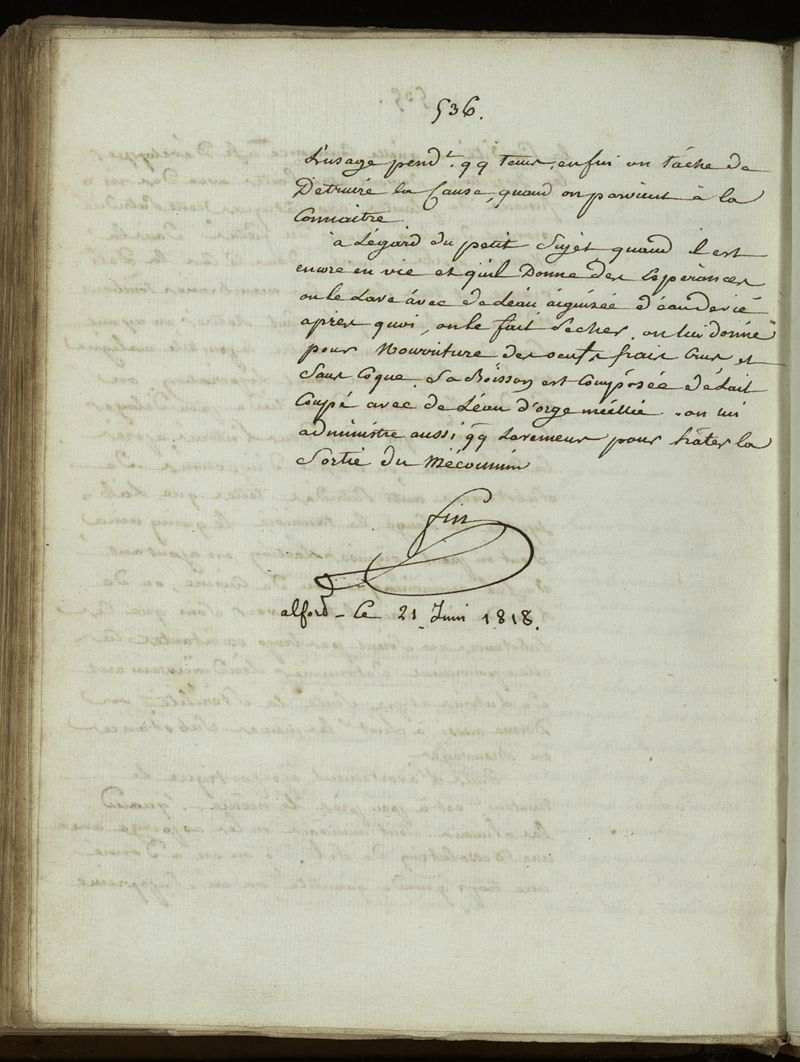 536.
L'usage pend.t qq tems, enfin on tâche de
Détruire la Cause, quand on parvient à la
Connaitre.
à Légard du petit Sujet quand il est
encore en vie et qu'il Donne des Espèrances
on le Lave avec de Léau aiguisée d'éau de vie
après quoi, on le fait Secher, on lui donne
pour Nourriture des oeufs frais Crus et
Sans Coque. Sa Boisson est Compôsée dé Lait
Coupé avec de Léau d'orge méillié. on lui
administre aussi qq Lavemens pour hâter la
Sortie du Mécounim
fin
alford - Le 21 Juin 1818.